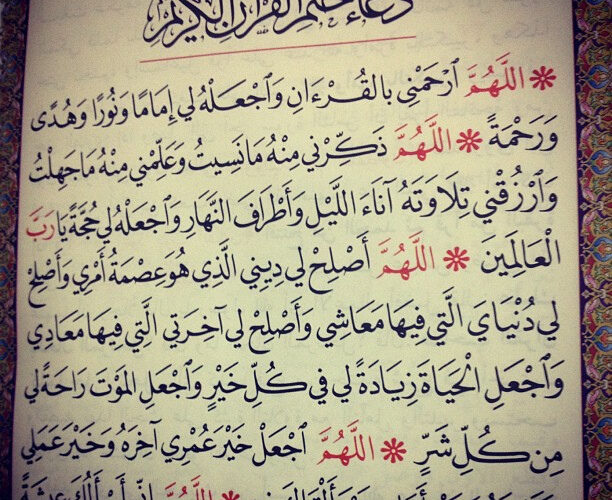 دُعَاءُ خَتْمِ الْقُرْآنِ الْكَرِيمِ
❋ اللَّهُمَّ ٱرْحَمْنِي بالقُرْءَانِ وَٱجْعَلْهُ لِي إِمَامًا وَنُورًا وَهُدًى
وَرَحْمَةً ❋ اللَّهُمَّ ذَكِّرْنِي مِنْهُ مَا نَسِيتُ وَعَلِّمْنِي مِنْهُ مَا جَهِلْتُ
وَٱرْزُقْنِي تِلَاوَتَهُ آنَاءَ اللَّيْلِ وَأَطْرَافَ النَّهَارِ وَٱجْعَلْهُ لِي حُجَّةً يَا رَبَّ
الْعَالَمِينَ ❋ اللَّهُمَّ أَصْلِحْ لِي دِينِي الَّذِي هُوَ عِصْمَةُ أَمْرِي وَأَصْلِحْ
لِي دُنْيَايَ الَّتِي فِيهَا مَعَاشِي وَأَصْلِحْ لِي آخِرَتِي الَّتِي فِيهَا مَعَادِي
وَٱجْعَلِ الْحَيَاةَ زِيَادَةً لِي فِي كُلِّ خَيْرٍ وَٱجْعَلِ الْمَوْتَ رَاحَةً لِي
مِن كُلِّ شَرٍّ ❋ اللَّهُمَّ ٱجْعَلْ خَيْرَ عُمْرِي آخِرَهُ وَخَيْرَ عَمَلِي
❋ اللَّهُمَّ إِنِّي أَسْأَلُكَ عِيشَةً